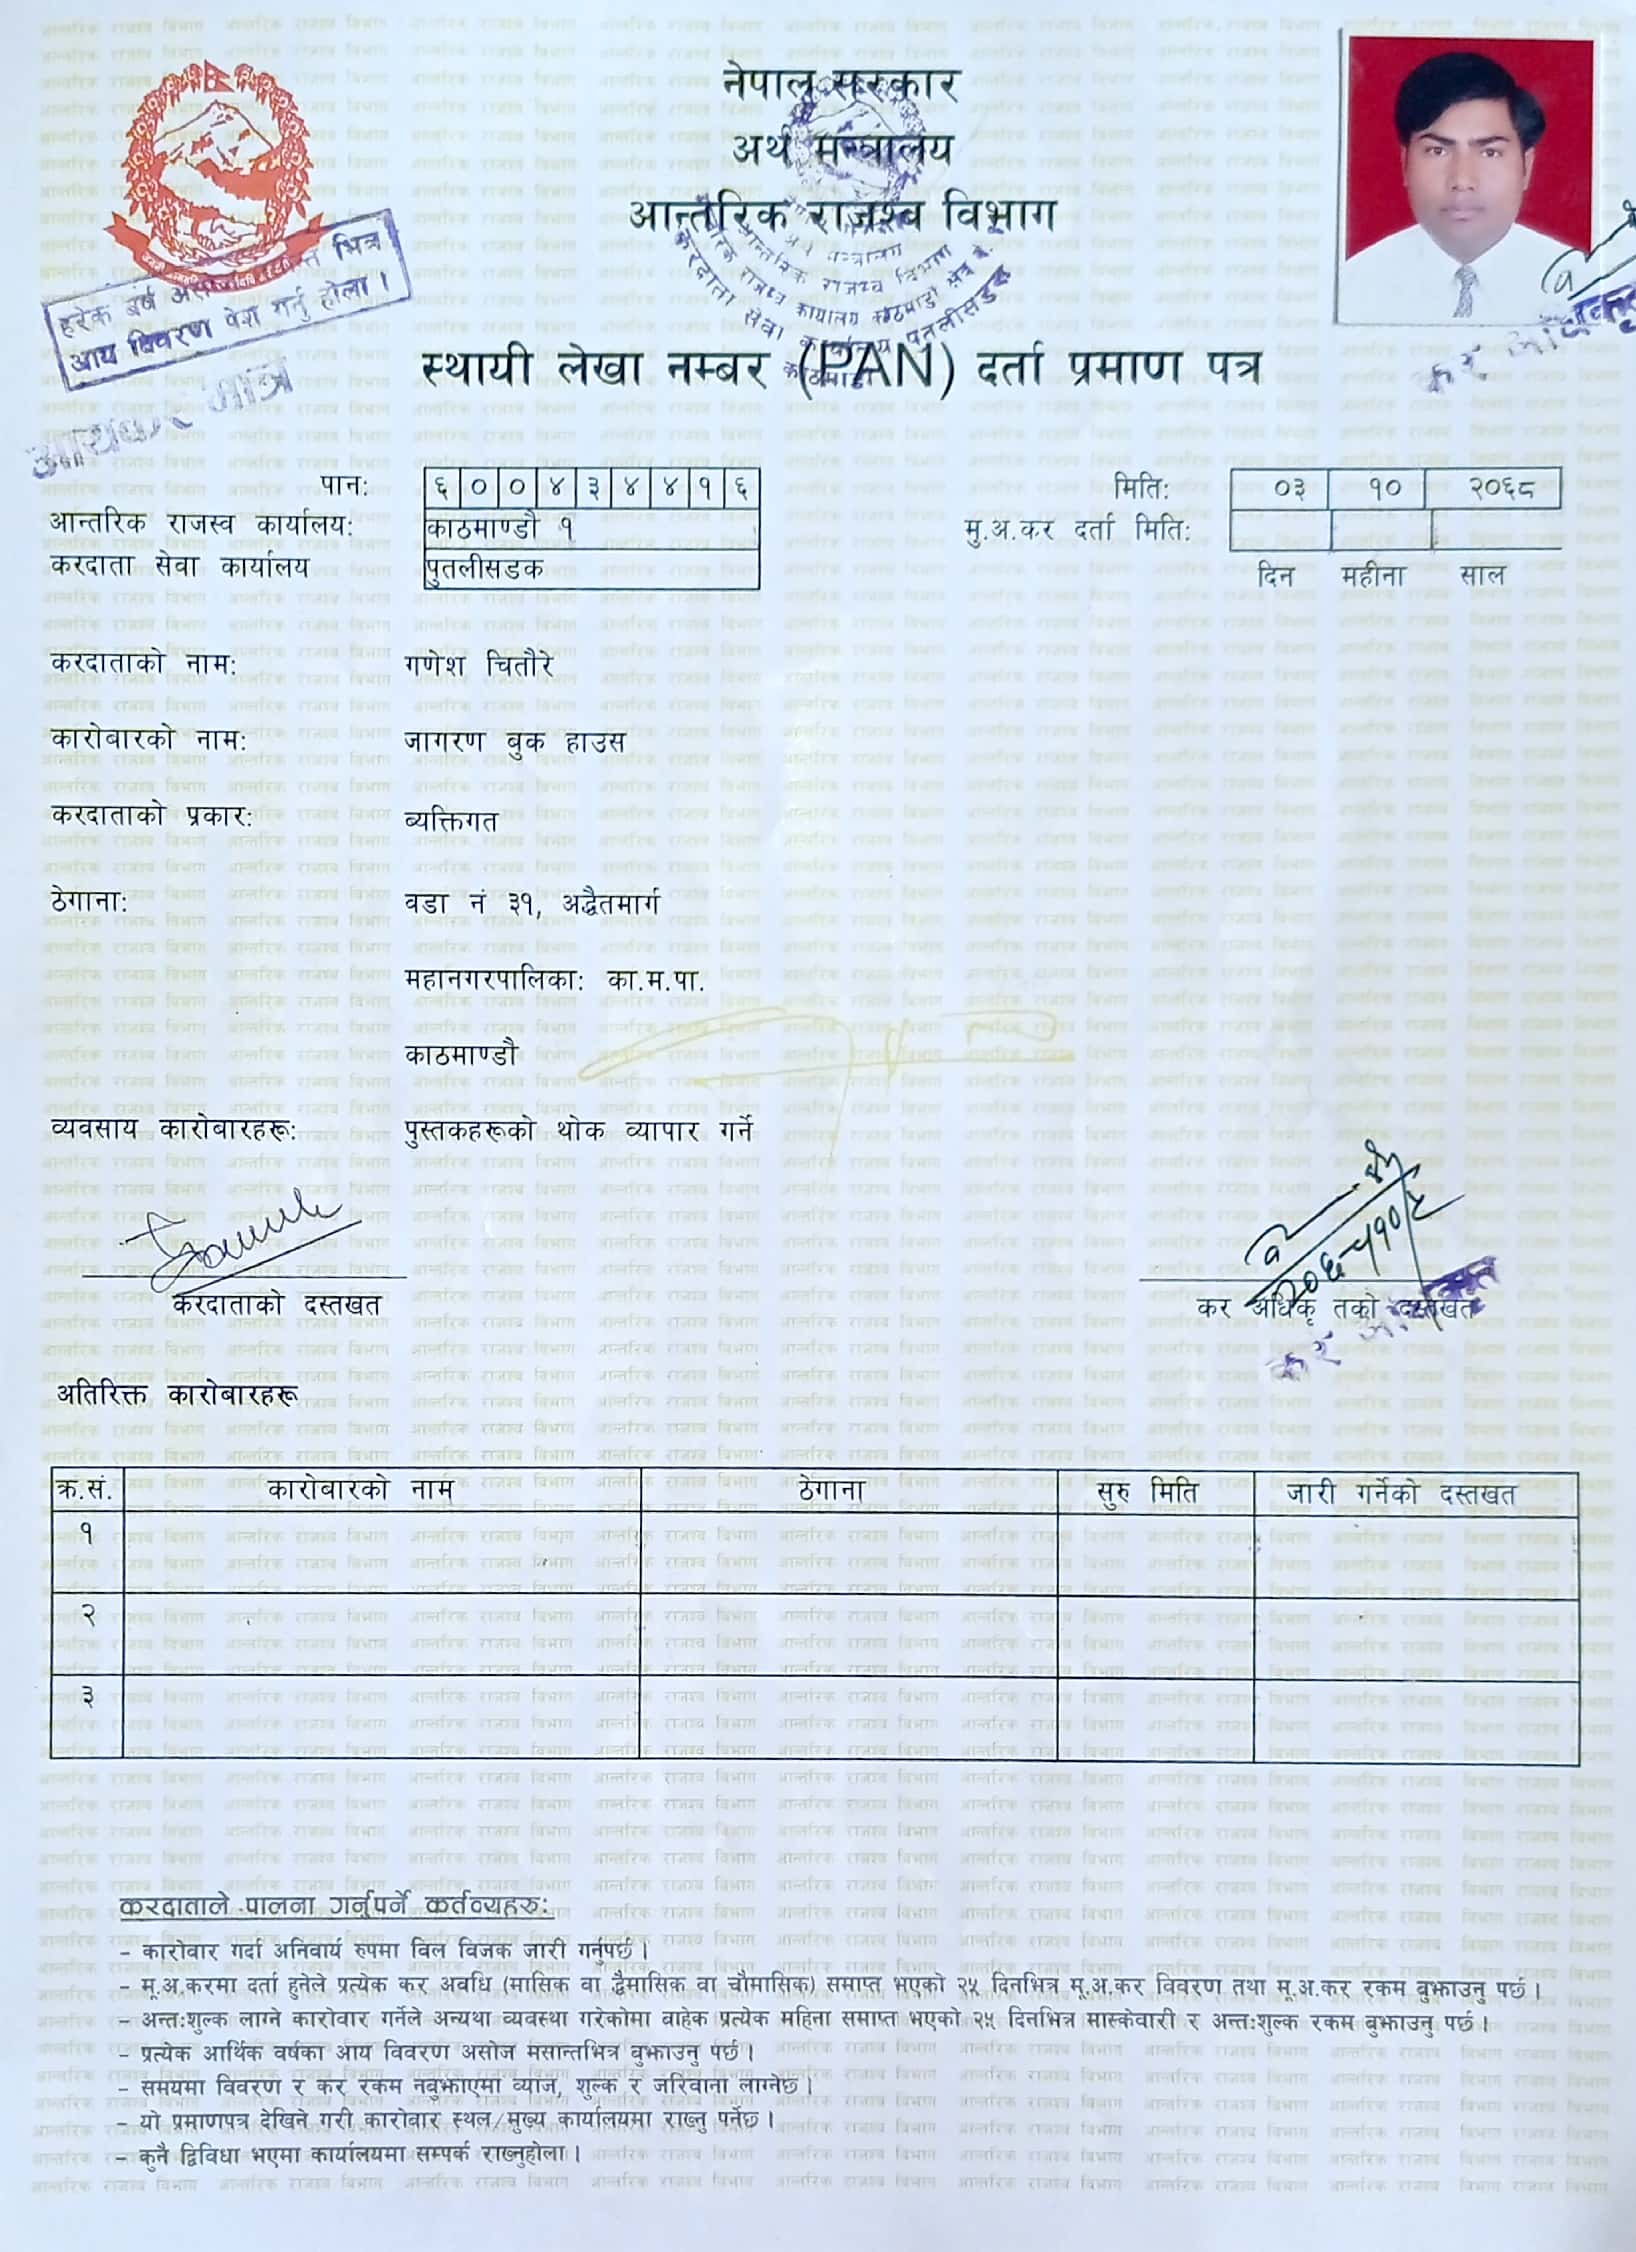 नेपाल सरकार
अर्थ मन्त्रालय
आन्तरिक राजश्व विभाग
हरेक वर्ष भित्र
आय विवरण पेश गर्नु होला ।
स्थायी लेखा नम्बर (PAN) दर्ता प्रमाण पत्र
आयकर मात्र
पान: ६ ० ० ४ ३ ४ ४ १ ६ मिति: ०३ १० २०६८
आन्तरिक राजस्व कार्यालय: काठमाण्डौ १ मु.अ.कर दर्ता मिति:
करदाता सेवा कार्यालय पुतलीसडक दिन महीना साल
करदाताको नाम: गणेश चितौरे
कारोबारको नाम: जागरण बुक हाउस
करदाताको प्रकार: ब्यक्तिगत
ठेगाना: वडा नं ३१, अद्वैतमार्ग
महानगरपालिका: का.म.पा.
काठमाण्डौ
व्यवसाय कारोबारहरू: पुस्तकहरूको थोक व्यापार गर्ने
करदाताको दस्तखत कर अधिकृतको दस्तखत
अतिरिक्त कारोबारहरू
क्र.सं. कारोबारको नाम ठेगाना सुरु मिति जारी गर्नेको दस्तखत
१
२
३
करदाताले पालना गर्नुपर्ने कर्तव्यहरु:
- कारोवार गर्दा अनिवार्य रुपमा विल विजक जारी गर्नुपर्छ ।
- मू.अ.करमा दर्ता हुनेले प्रत्येक कर अवधि (मासिक वा द्वैमासिक वा चौमासिक) समाप्त भएको २५ दिनभित्र मू.अ.कर विवरण तथा मू.अ.कर रकम बुझाउनु पर्छ ।
- अन्त:शुल्क लाग्ने कारोवार गर्नेले अन्यथा व्यवस्था गरेकोमा वाहेक प्रत्येक महिना समाप्त भएको २५ दिनभित्र मास्केवारी र अन्त:शुल्क रकम बुझाउनु पर्छ ।
- प्रत्येक आर्थिक वर्षका आय विवरण असोज मसान्तभित्र बुझाउनु पर्छ ।
- समयमा विवरण र कर रकम नबुझाएमा व्याज, शुल्क र जरिवाना लाग्नेछ ।
- यो प्रमाणपत्र देखिने गरी कारोबार स्थल/मुख्य कार्यालयमा राख्नु पर्नेछ ।
- कुनै द्विविधा भएमा कार्यालयमा सम्पर्क राख्नुहोला ।